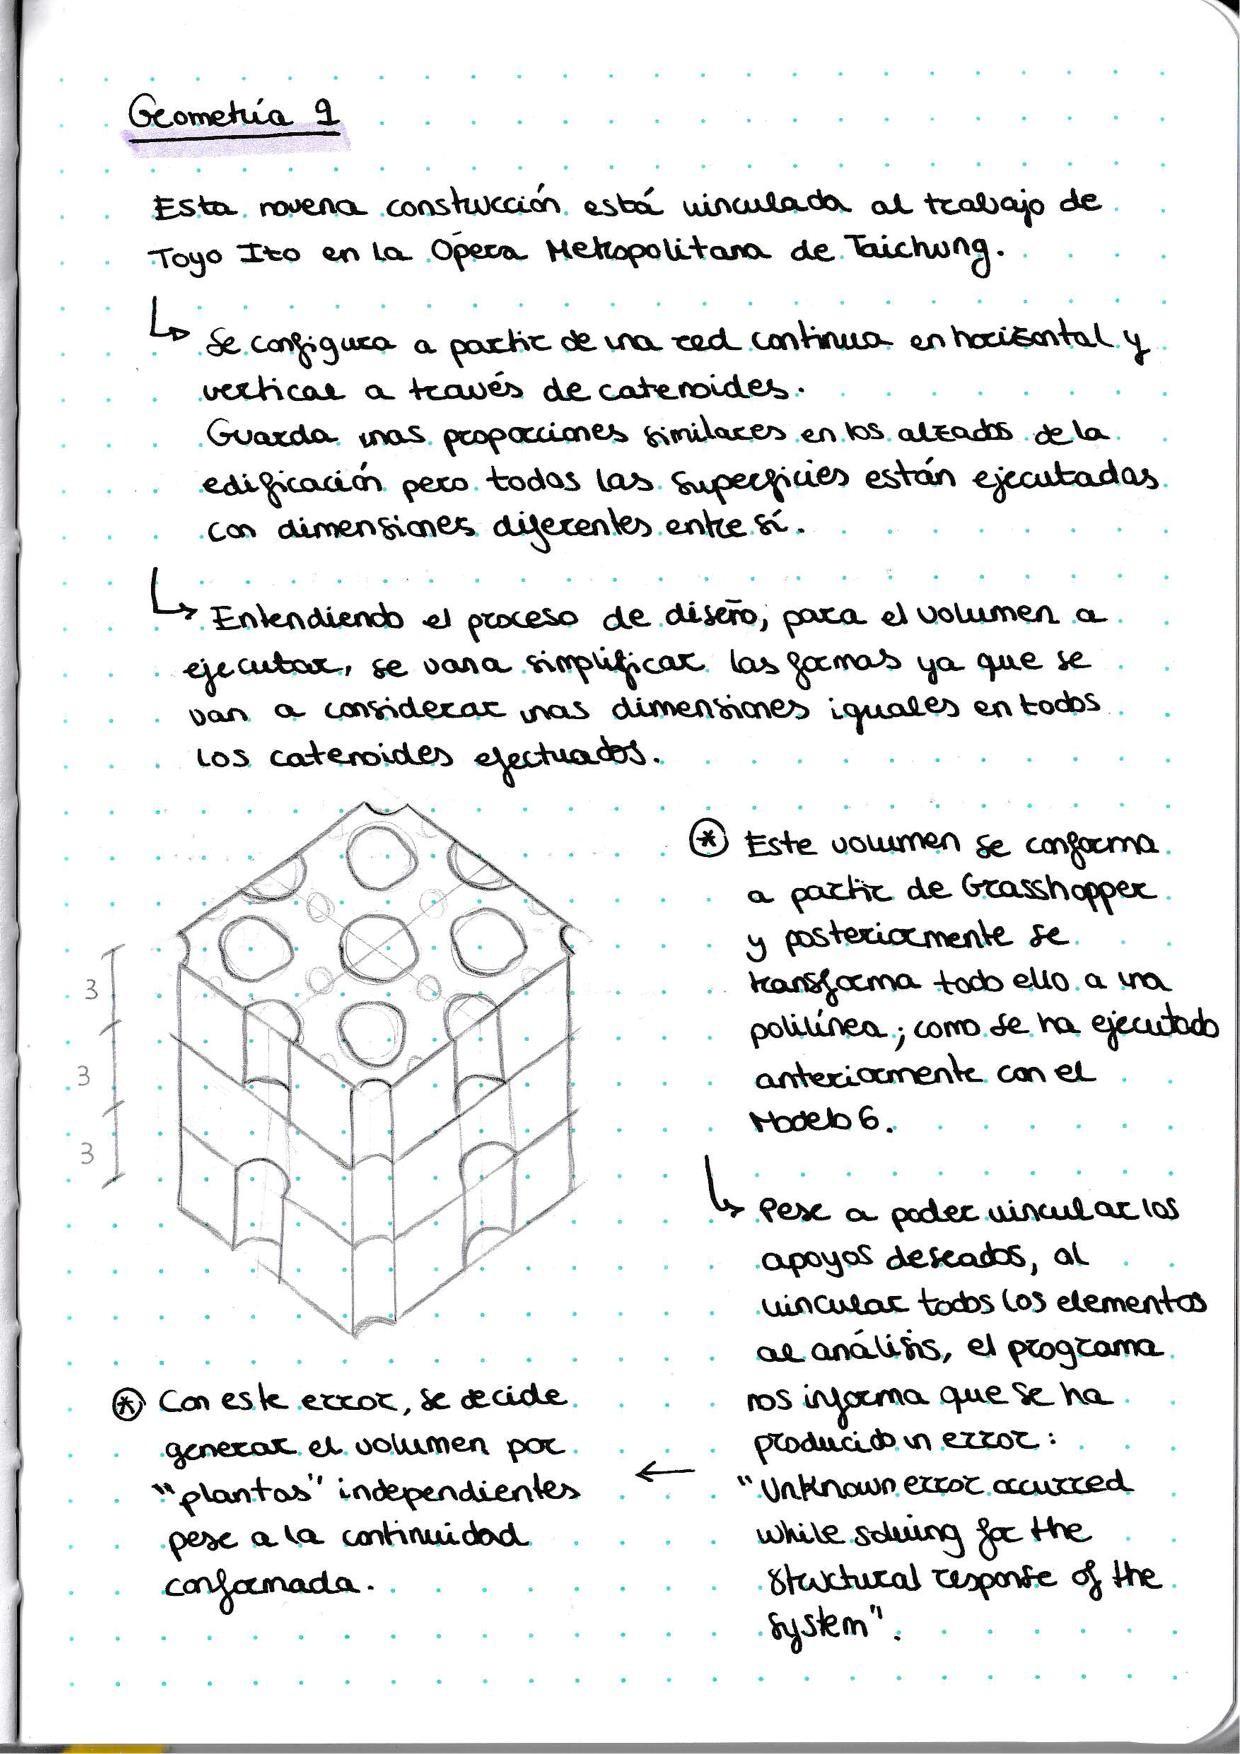 Geometría 9
Esta novena construcción está vinculada al trabajo de
Toyo Ito en la Ópera Metropolitana de Taichung.
Se configura a partir de una red continua en horizontal y
vertical a través de catenoides.
Guarda unas proporciones similares en los alzados de la
edificación pero todas las superficies están ejecutadas
con dimensiones diferentes entre sí.
Entendiendo el proceso de diseño, para el volumen a
ejecutar, se van a simplificar las formas ya que se
van a considerar unas dimensiones iguales en todos
los catenoides efectuados.
3
3
3
* Este volumen se conforma
a partir de Grasshopper
y posteriormente se
transforma todo ello a una
polilínea; como se ha ejecutado
anteriormente con el
Modelo 6.
Pese a poder vincular los
apoyos deseados, al
vincular todos los elementos
al análisis, el programa
nos informa que se ha
producido un error:
"Unknown error ocurred
while solving for the
structural response of the
system".
* Con este error, se decide
generar el volumen por
"plantas" independientes
pese a la continuidad
conformada.